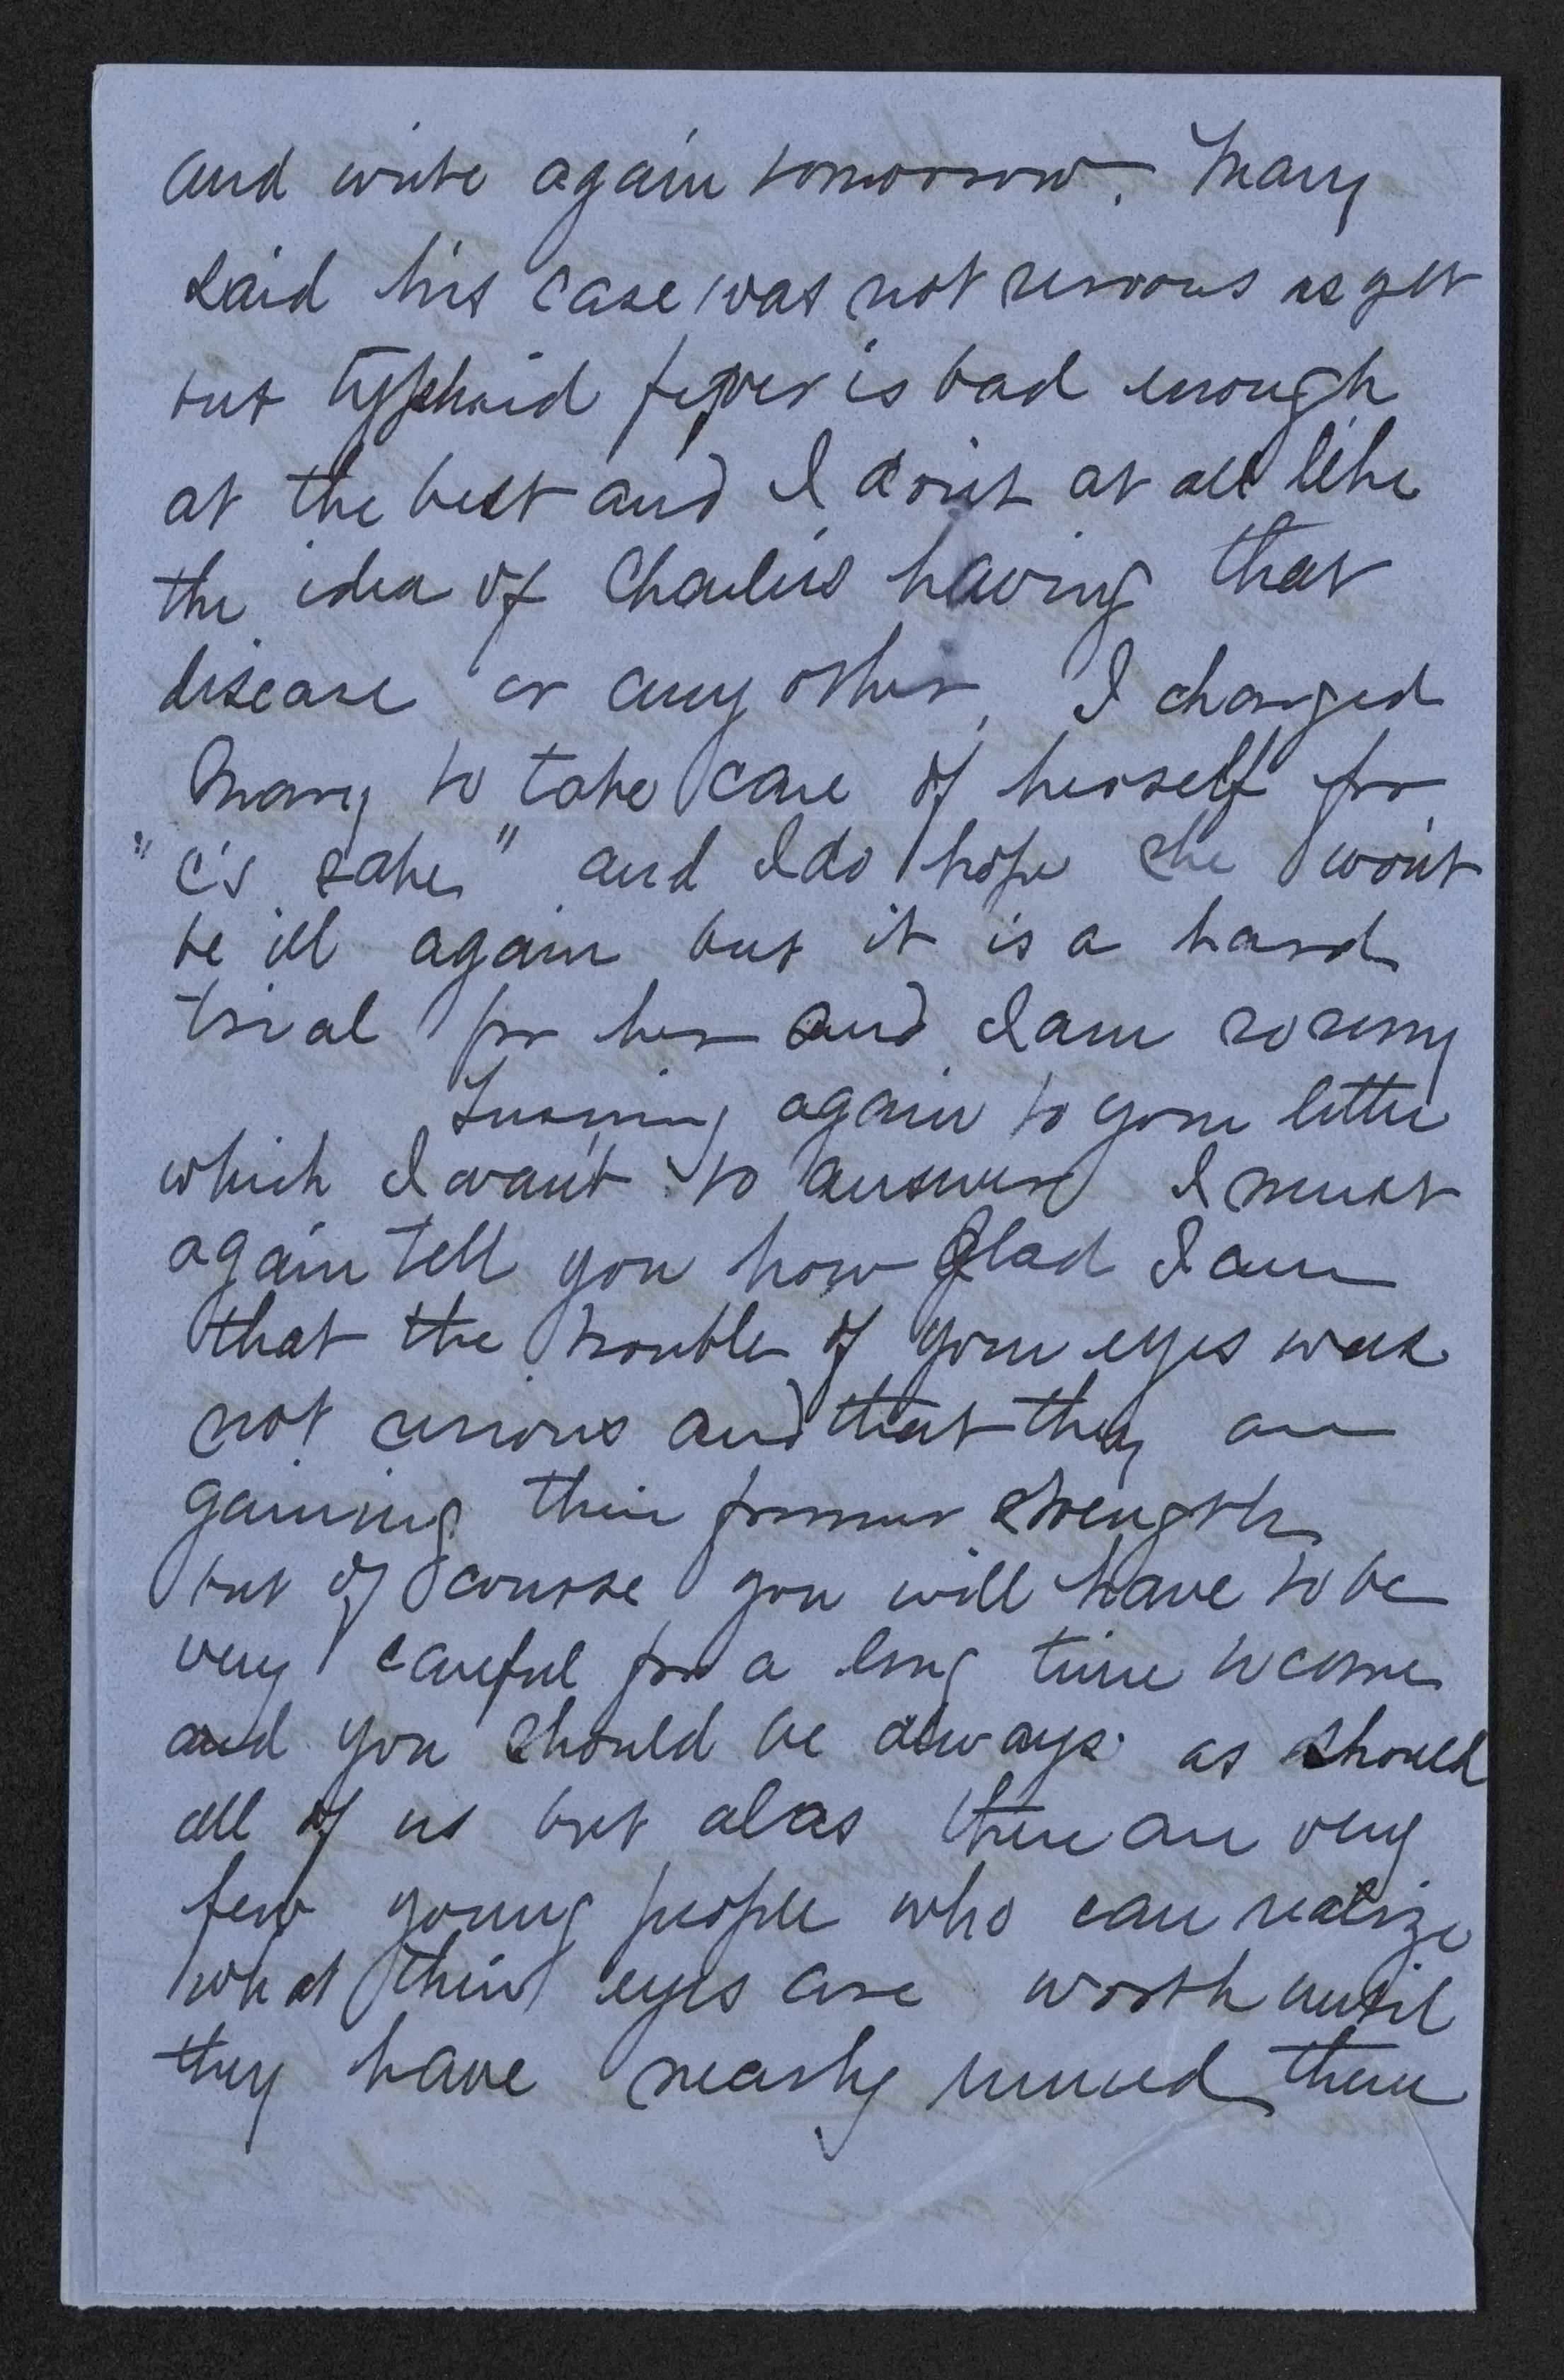 and write again tomorrow. Mary
said his case was not serious as yet
but typhoid fever is bad enough
at the best and I don't at all like
the idea of Charlie's having that
disease or any other. I charged
Mary to take care of herself for
"C's sake" and I do hope she won't
be ill again but it is a hard
trial for her and I am so sorry
Turning again to your letter
which I want to answer I must
again tell you how glad I am
that the trouble of your eyes was
not serious and that they are
gaining their former strength
but of course you will have to be
very careful for a long time to come
and you should be always as should
all of us but alas there are very
few young people who can realize
what their eyes are worth until
they have nearly ruined them